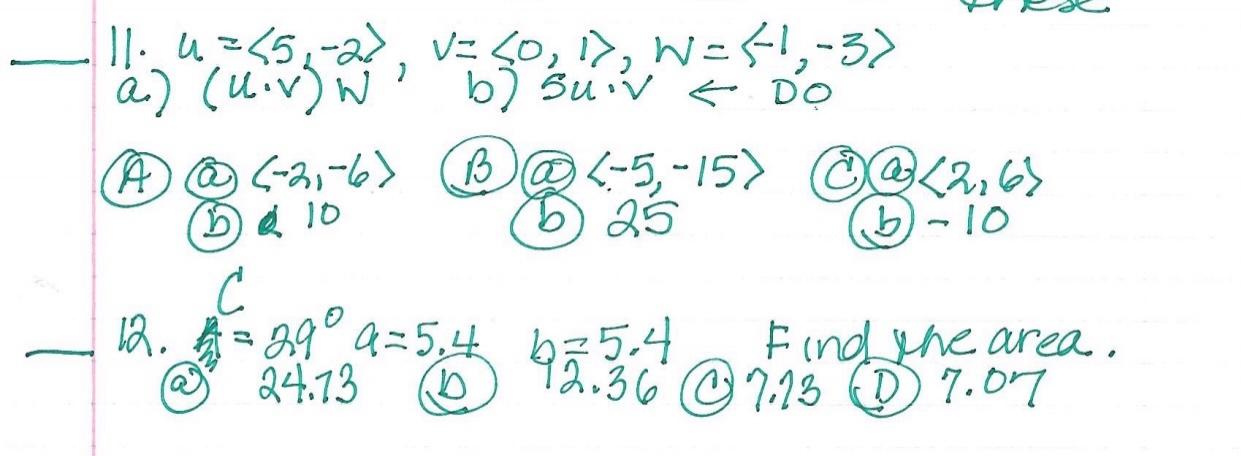 these
11. u = <5, -2>, v = <0, 1>, w = <-1, -3>
a.) (u·v) w b) 5u·v ← DO
A a <-2, -6> B a <-5, -15> C a <2, 6>
b 10 b 25 b -10
C
12. = 29° a = 5.4 b = 5.4 Find the area.
a 24.73 b 12.36 C 7.73 D 7.07